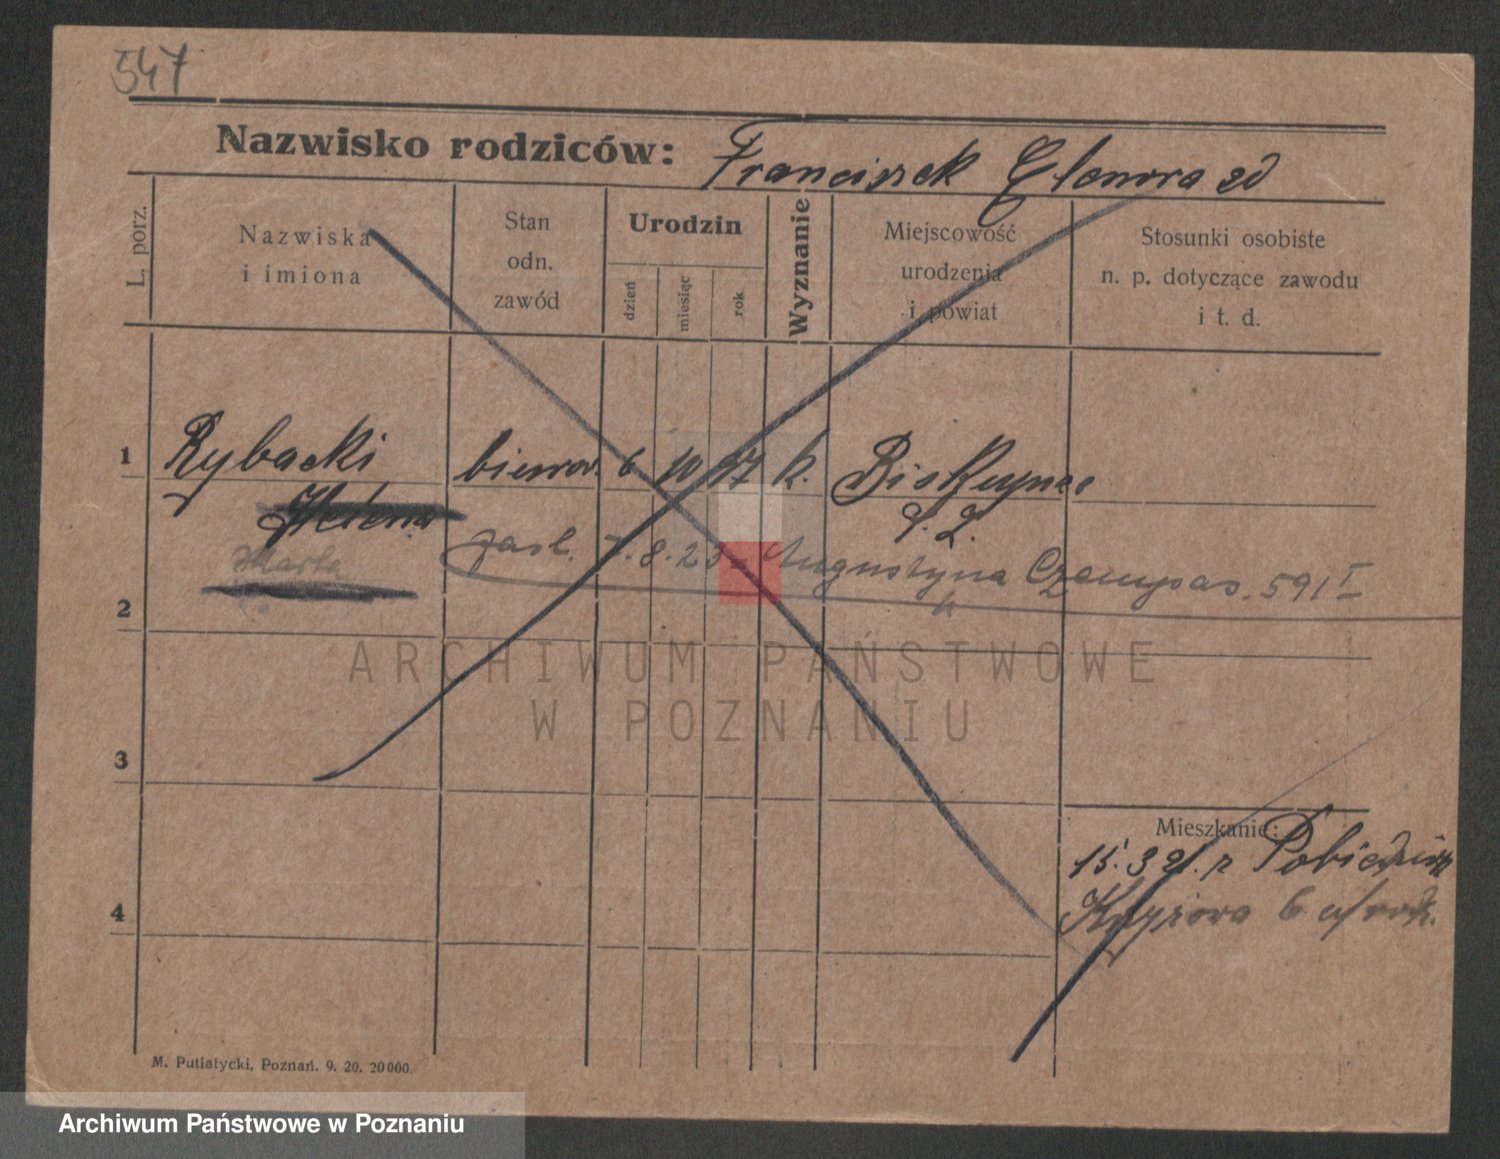 547
Nazwisko rodziców: Franciszek
L. porz.
Nazwiska
i imiona
Stan
odn.
zawód
Urodzin
dzień
miesiąc
rok
Wyznanie
Miejscowość
urodzenia
i powiat
Stosunki osobiste
n. p. dotyczące zawodu
i t. d.
1 Rybacki 6 10 k.
Helena
Marta
7.8.23 Augustyna 591 I
2
ARCHIWUM PAŃSTWOWE
W POZNANIU
3
Mieszkanie:
15.3 21. z
6
4
M. Putiatycki, Poznań. 9. 20. 20 000.
Archiwum Państwowe w Poznaniu